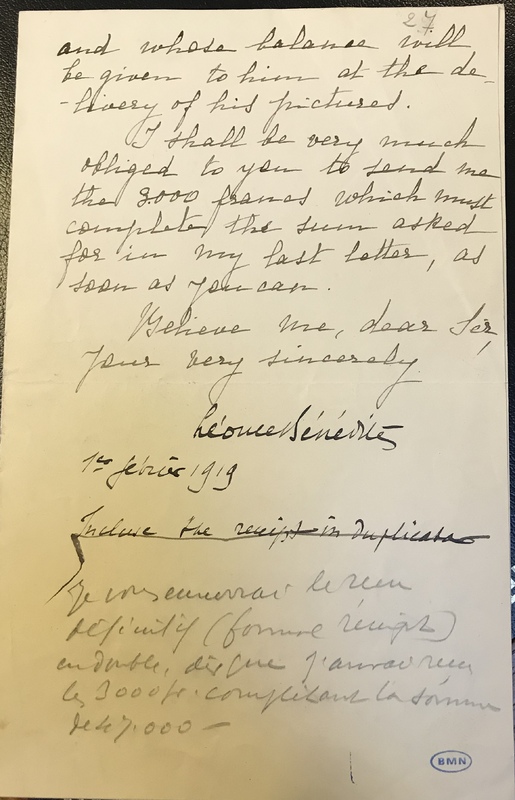 27
and whose balance will
be given to him at the de-
-livery of his pictures.
I shall be very much
obliged to you to send me
the 3000 francs which must
complete the sum asked
for in my last letter, as
soon as you can.
Believe me, dear Sir,
Your very sincerely
Léonce Bénédite
1er février 1919
Incluse the receipt in duplicata
Je vous enverrai le reçu
définitif (formal receipt)
en double, dès que j'aurai reçu
les 3000 fr. complétant la somme
de 47.000 —
BMN